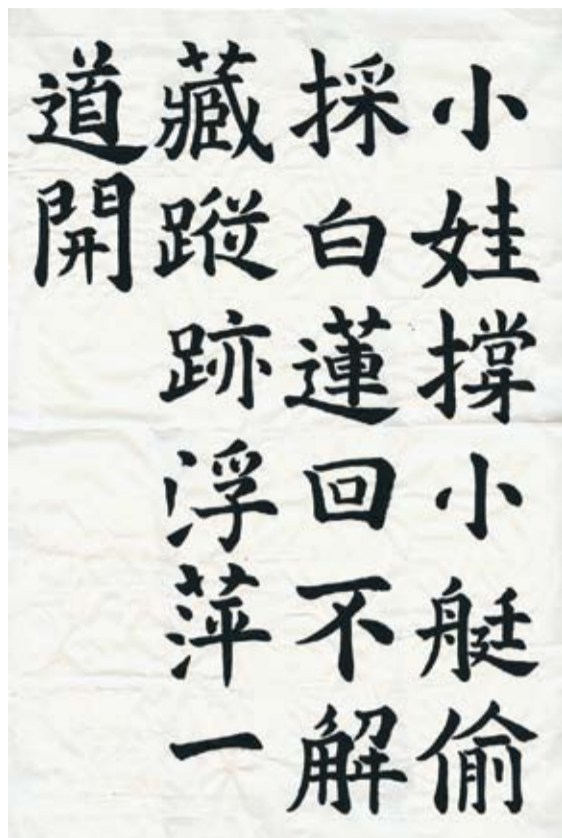 小娃撐小艇偷
採白蓮回不解
藏蹤跡浮萍一
道開